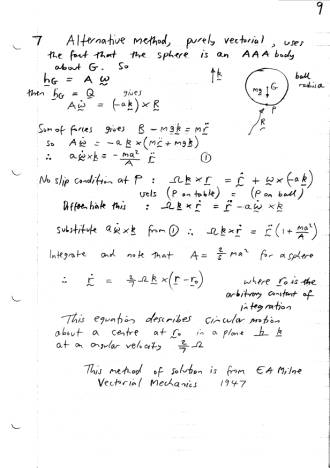 9
7 Alternative method, purely vectorial, uses
the fact that the sphere is an AAA body
about G. So
h_G = A ω
then ḣ_G = Q gives
A ω̇ = (-a k) × R
k
mg
G
P
R
ball
radius a
Sum of forces gives R - mg k = m r̈
so A ω̇ = -a k × (m r̈ + mg k)
∴ a ω̇ × k = - ma²/A r̈ ①
No slip condition at P : Ω k × r = ṙ + ω × (-a k)
vels (P on table) = (P on ball)
Differentiate this : Ω k × ṙ = r̈ - a ω̇ × k
substitute a ω̇ × k from ① ∴ Ω k × ṙ = r̈ (1 + ma²/A)
Integrate and note that A = 2/5 ma² for a sphere
∴ ṙ = 2/7 Ω k × (r - r₀) where r₀ is the
arbitrary constant of
integration
This equation describes circular motion
about a centre at r₀ in a plane h k
at an angular velocity 2/7 Ω
This method of solution is from E A Milne
Vectorial Mechanics 1947